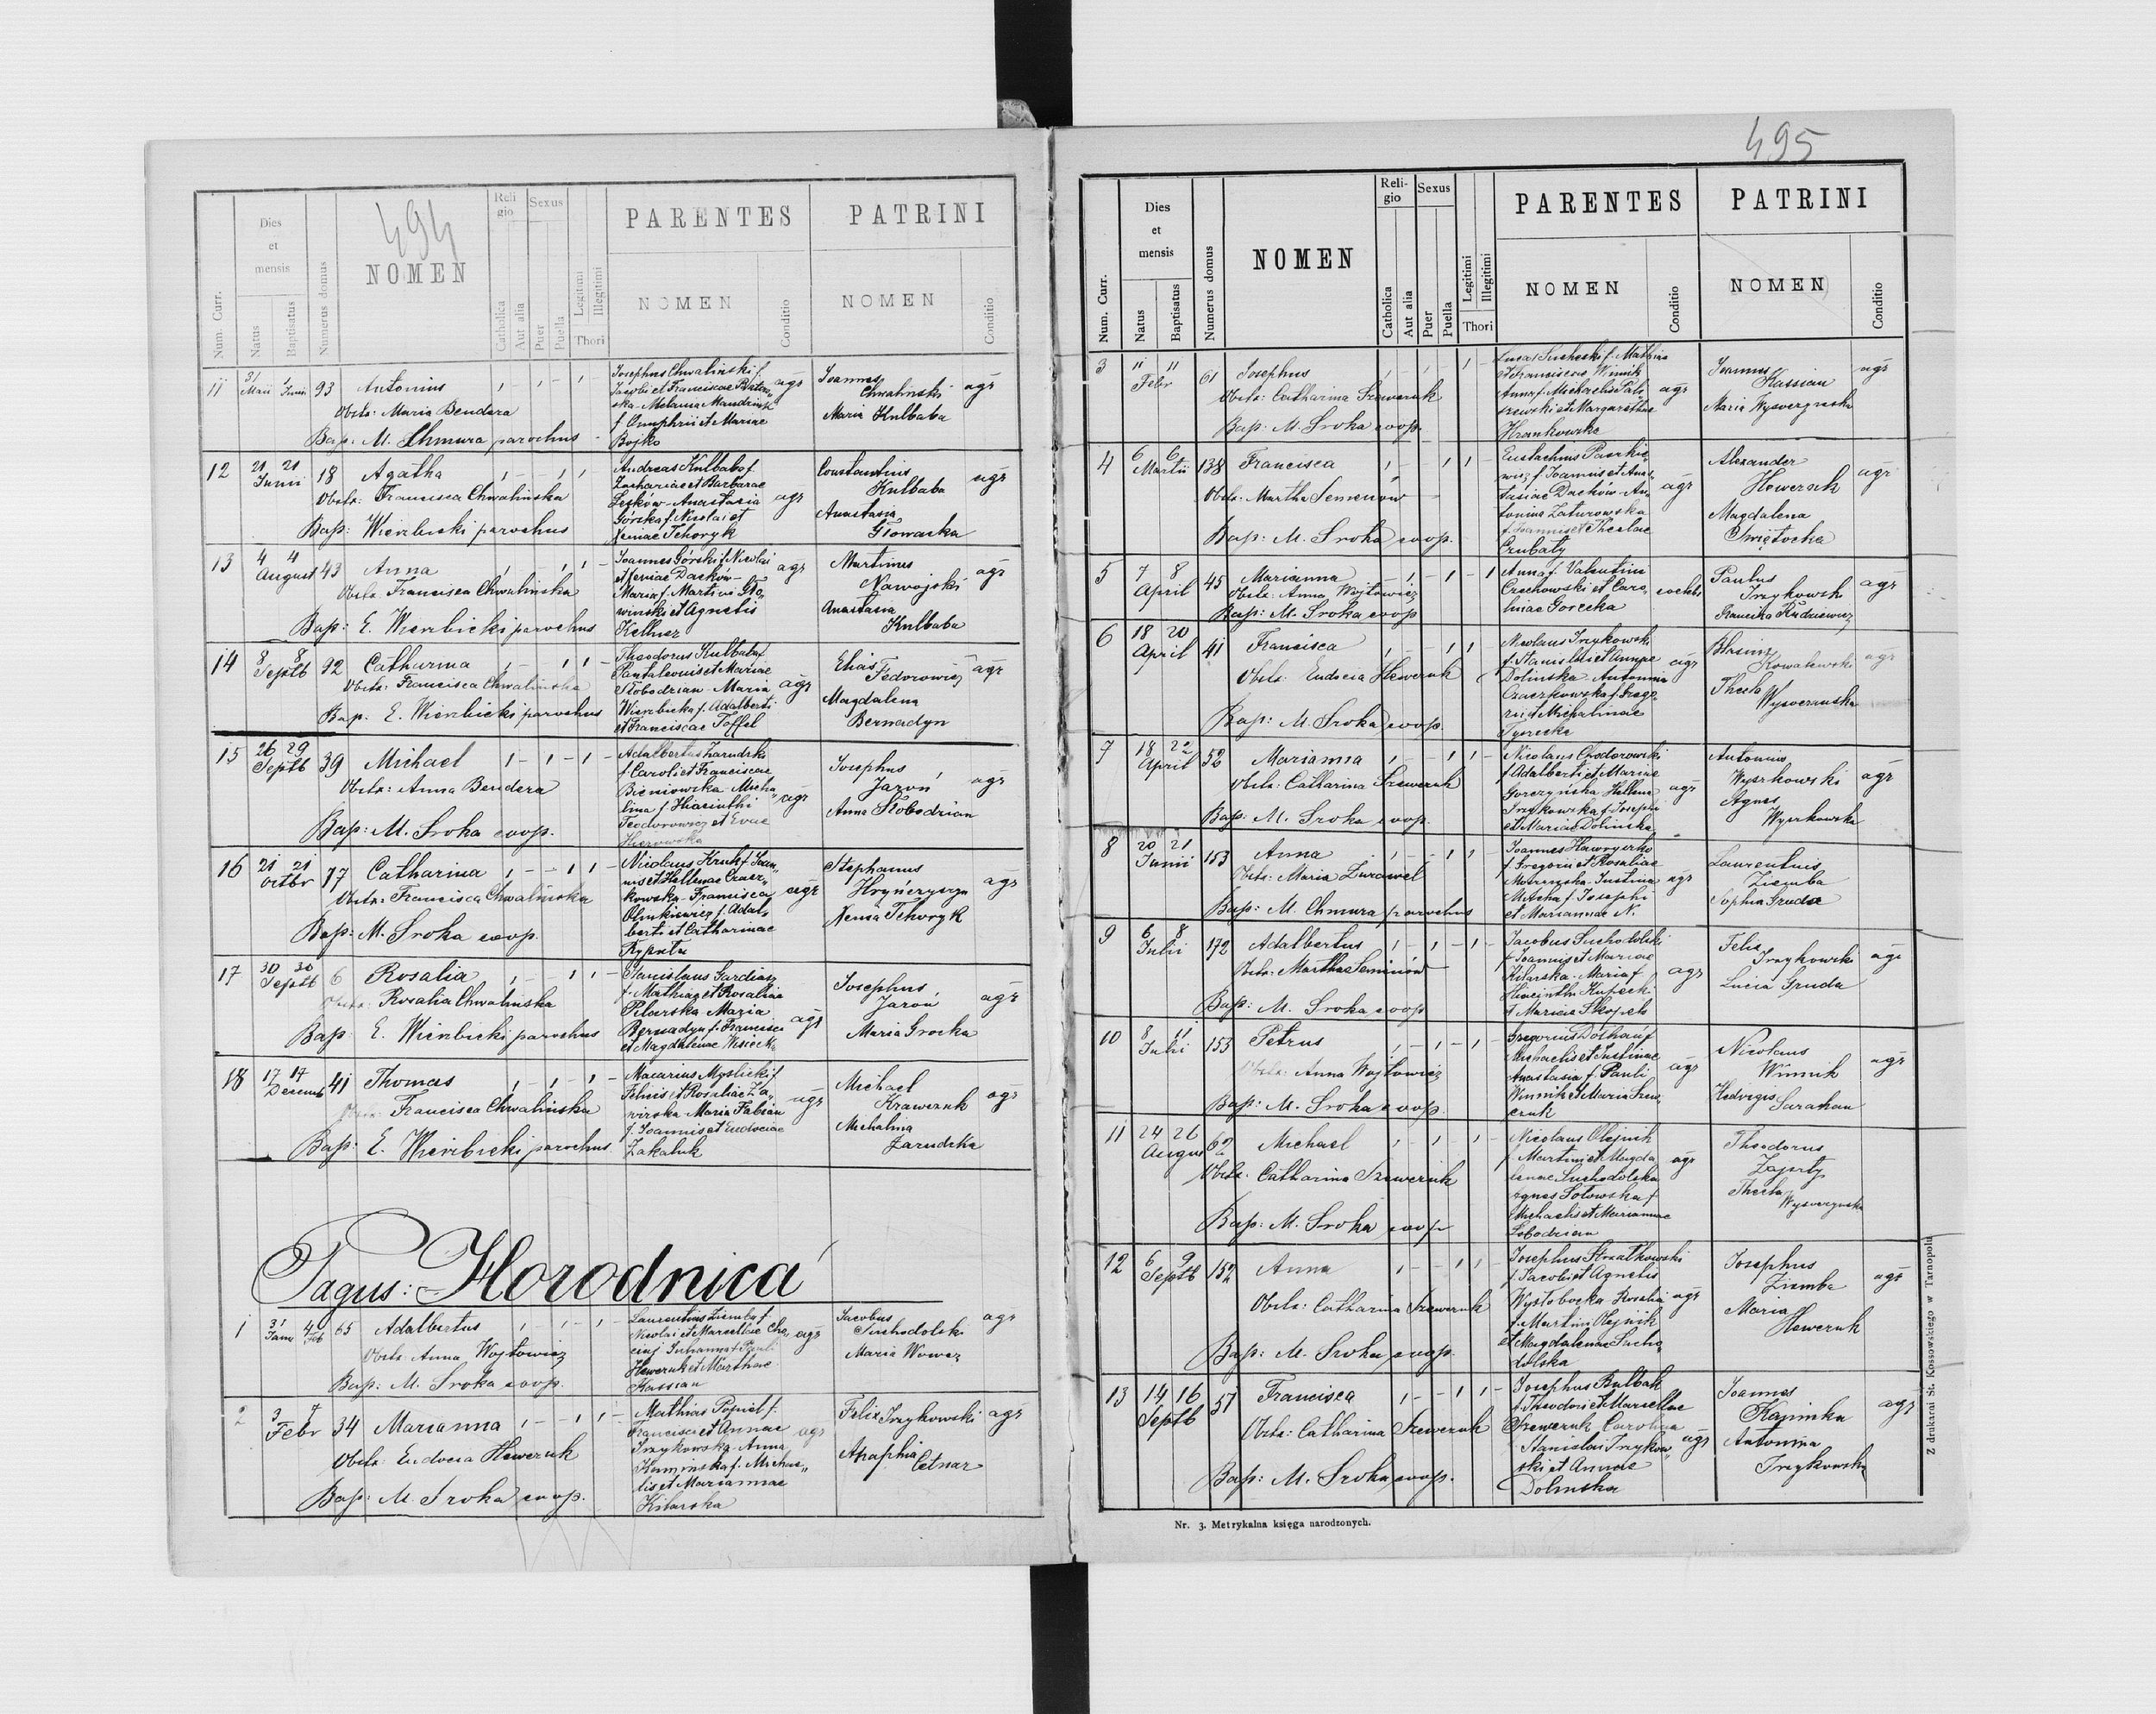 494
Num. Curr.
Dies et mensis
Natus
Baptisatus
Numerus domus
NOMEN
Religio
Catholica
Aut alia
Sexus
Puer
Puella
Legitimi
Illegitimi
Thori
PARENTES
NOMEN
Conditio
PATRINI
NOMEN
Conditio
11 31 Maii 1 Junii 93 Antonius
Obstx: Maria Bendera
Bap: M. Chmura parochus
Josephus Chwaliński f.
Jacobi et Franciscae
ska - Melania
f. Onuphrii et Mariae
Bojko
agr
Joannes
Chwaliński
Maria Kulbaba
agr
12 21 21 Junii 18 Agatha
Obstx: Francisca Chwalińska
Bap: Wierzbicki parochus
Andreas Kulbaba f.
Zachariae et Barbarae
Leśków - Anastasia
Górska f. Nicolai et
Xeniae Tchoryk
agr
Constantius
Kulbaba
Anastasia
Głowacka
agr
13 4 4 August 43 Anna
Obstx: Francisca Chwalińska
Bap: E. Wierzbicki parochus
Joannes Górski f. Nicolai
et Xeniae Daćków -
Maria f. Martini Gło-
wiński et Agnetis
Kellner
agr
Martinus
Nawojski
Anastasia
Kulbaba
agr
14 8 8 Septb 92 Catharina
Obstx: Francisca Chwalińska
Bap: E. Wierzbicki parochus
Theodorus Kulbaba f.
Pantaleonis et Mariae
Słobodzian - Maria
Wierzbicka f. Adalberti
et Franciscae Toffel
agr
Elias
Fedorowicz
Magdalena
Bernadyn
agr
15 26 29 Septb 39 Michael
Obstx: Anna Bendera
Bap: M. Sroka coop.
Adalbertus Zarudzki
f. Caroli et Franciscae
Bieniowska - Micha-
lina f. Hiacinthi
Teodorowicz et Evae
agr
Josephus
Jaroń
Anna Słobodzian
agr
16 21 21 Octbr 77 Catharina
Obstx: Francisca Chwalińska
Bap: M. Sroka coop.
Nicolaus Kruk f. Joan-
nis et Hellenae Czacz-
kowska - Francisca
f. Adal-
berti et Catharinae
agr
Stephanus
Hryńczyszyn
Xenia Tchoryk
agr
17 30 30 Septb 6 Rosalia
Obstx: Rosalia Chwalińska
Bap: E. Wierzbicki parochus
Stanislaus Gardiasz
f. Mathiae et Rosaliae
Pilarska - Maria
Bernadyn f. Francisci
et Magdalenae
agr
Josephus
Jaroń
Maria Grocka
agr
18 17 17 Decemb 41 Thomas
Obstx: Francisca Chwalińska
Bap: E. Wierzbicki parochus
Macarius Myślicki f.
Felicis et Rosaliae Za-
wirska Maria Fabian
f. Joannis et Eudociae
Zakaluk
agr
Michael
Krawczuk
Michalina
Zarudzka
agr
Pagus: Horodnica
1 31 Janu 4 Feb 65 Adalbertus
Obstx Anna Wojtowicz
Bap: M. Sroka coop.
Laurentius Ziemba f.
Nicolai et Marcellae
f. Pauli
Hewczuk et Marthae
Kassian
agr
Jacobus
Suchodolski
Maria Wowcz
agr
2 3 4 Febr 34 Marianna
Obstx: Eudocia Hewczuk
Bap: M. Sroka coop.
Mathias Popiel f.
Francisci et Annae
Trzykowska - Anna
Kuminska f. Michae-
lis et Mariannae
Kilarska
agr
Felix Trzykowski
Agaphia
Cetnar
agr
495
Num. Curr.
Dies et mensis
Natus
Baptisatus
Numerus domus
NOMEN
Religio
Catholica
Aut alia
Sexus
Puer
Puella
Legitimi
Illegitimi
Thori
PARENTES
NOMEN
Conditio
PATRINI
NOMEN
Conditio
3 11 11 Febr 61 Josephus
Obstx: Catharina Szewczuk
Bap: M. Sroka coop.
Lucas Sucheski f. Mathiae
et Franciscae Winnik
Anna f. Michaelis
et Margarethae
Hrankowska
agr
Joannes
Kassian
Maria
agr
4 6 6 Martii 138 Francisca
Obstx: Martha Semeniów
Bap: M. Sroka coop.
Eustachius Paszkie-
wicz f. Joannis et Anas-
tasiae Daćków - An-
tonina Zaturowska
f. Joannis et Theclae
Czubaty
agr
Alexander
Hewczuk
Magdalena
agr
5 7 8 April 45 Marianna
Obstx: Anna Wojtowicz
Bap: M. Sroka coop
Anna f. Valentini
Czechowski et Caro-
linae Gorecka
Paulus
Trzykowski
Franciska
agr
6 18 20 April 41 Francisca
Obstx: Eudocia Hewczuk
Bap: M. Sroka coop.
Nicolaus Trzykowski
f. Stanislai et Annae
Dolinska - Antonina
Czaczkowska f. Grego-
rii et Michalinae
agr
Kowalewski
Thecla
agr
7 18 22 April 52 Marianna
Obstx: Catharina Szewczuk
Bap: M. Sroka coop.
Nicolaus Chodorowski
f. Adalberti et Mariae
Gorczyńska Hellena
Trzykowska f. Josephi
et Mariae Dolinska
agr
Antonius
Agnes
agr
8 20 21 Junii 153 Anna
Obstx: Maria Żurawel
Bap: M. Chmura parochus
Joannes
f. Gregorii et Rosaliae
Justina
f. Josephi
et Mariannae N.
agr
Laurentius
Ziemba
Sophia Gruda
agr
9 6 8 Julii 172 Adalbertus
Obstx: Martha Semeniów
Bap: M. Sroka coop
Jacobus Suchodolski
f. Joannis et Mariae
Kilarska - Maria f.
Hiacinthi Kupecki
et Mariae
agr
Felix
Trzykowski
Lucia Gruda
agr
10 8 11 Julii 153 Petrus
Obstx: Anna Wojtowicz
Bap: M. Sroka coop.
Gregorius Dołhań f.
Michaelis et Justinae
Anastasia f. Pauli
Winnik et Maria Szew-
czuk
agr
Nicolaus
Winnik
Hedvigis
agr
11 24 26 Augus 62 Michael
Obstx. Catharina Szewczuk
Bap: M. Sroka coop
Nicolaus Olejnik
f. Martini et Magda-
lenae Suchodolska
Agnes Sołowska f.
Michaelis et Mariannae
agr
Theodorus
Thecla
12 6 9 Septb 152 Anna
Obstx: Catharina Szewczuk
Bap: M. Sroka coop.
Josephus Strzałkowski
f. Jacobi et Agnetis
Wysłobocka Rosalia
f. Martini Olejnik
et Magdalenae Sucho-
dolska
agr
Josephus
Ziemba
Maria
Hewczuk
agr
13 14 16 Septb 57 Francisca
Obstx: Catharina Szewczuk
Bap: M. Sroka coop.
Josephus Bulbak
f. Theodori et Marcellae
Szewczuk Carolina
Stanislai Trzykow-
ski et Annae
Dolinska
agr
Joannes
Kaminka
Antonina
Trzykowska
agr
Nr. 3. Metrykalna księga narodzonych.
Z drukarni St. Kossowskiego w Tarnopolu